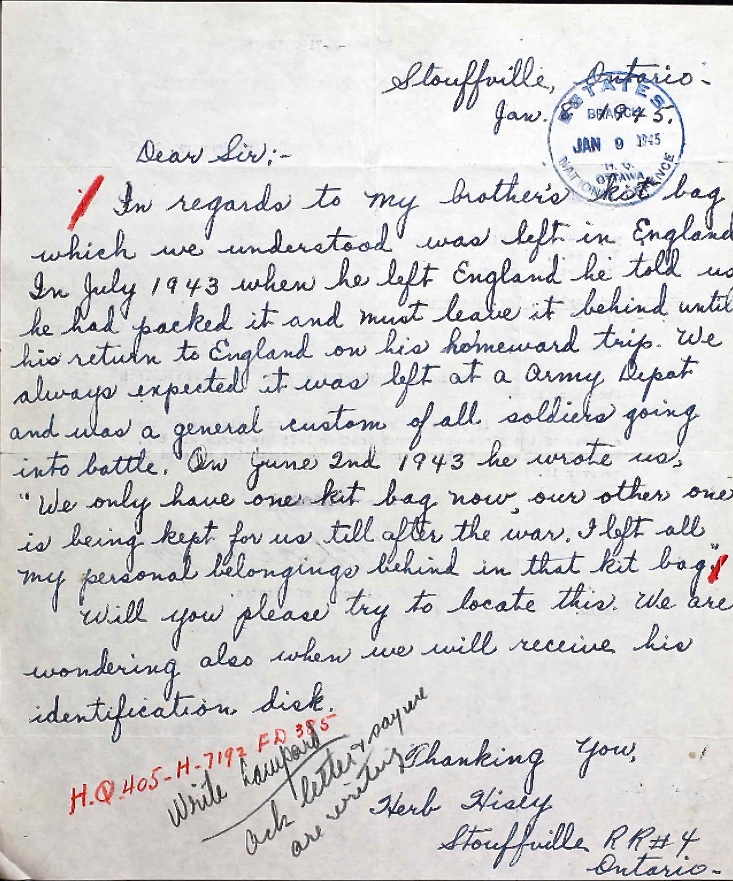 Stouffville, Ontario-
Jan. 8 1945.
ESTATES
BRANCH
JAN 9 1945
H. Q.
OTTAWA
NATIONAL DEFENCE
Dear Sir;-
In regards to my brother's kit bag
which we understood was left in England
In July 1943 when he left England he told us
he had packed it and must leave it behind until
his return to England on his homeward trip. We
always expected it was left at a Army Depot
and was a general custom of all soldiers going
into battle. On June 2nd 1943 he wrote us,
"We only have one kit bag now, our other one
is being kept for us till after the war. I left all
my personal belongings behind in that kit bag."
Will you please try to locate this. We are
wondering also when we will receive his
identification disk.
H.Q. 405-H-7192 FD 385
Write Lampard
Ack letter & say we
are writing
Thanking You,
Herb Hisey
Stouffville RR#4
Ontario-